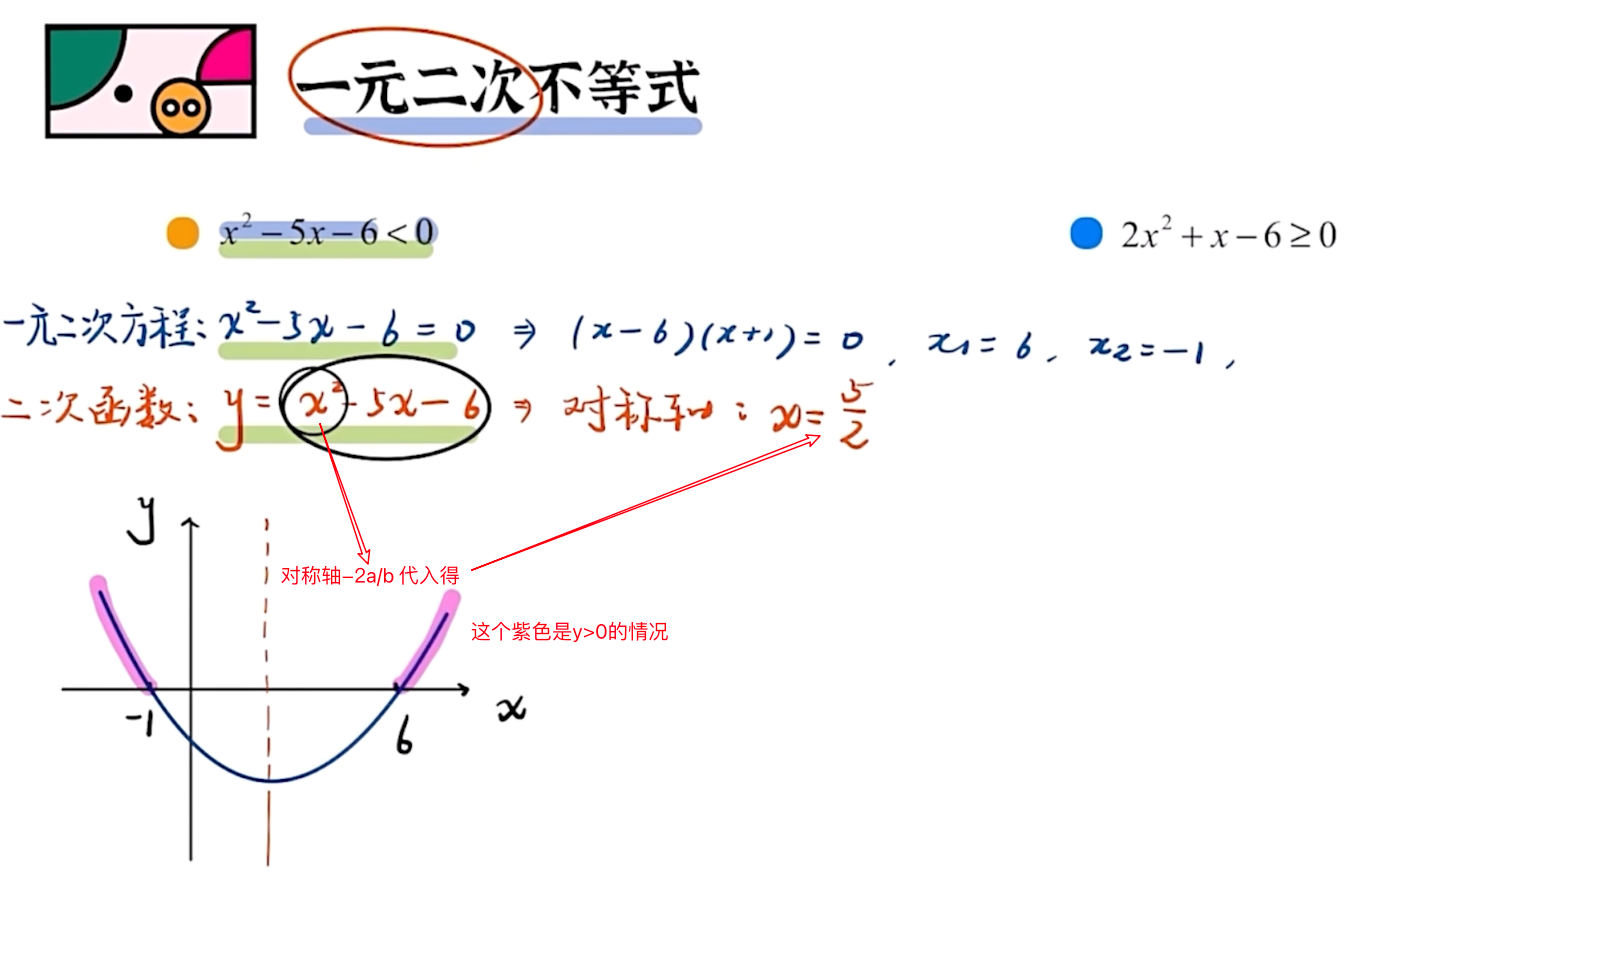 一元二次不等式
x² − 5x − 6 < 0
2x² + x − 6 ≥ 0
一元二次方程: x² − 5x − 6 = 0 ⇒ (x − 6)(x + 1) = 0 , x₁ = 6 , x₂ = −1 ,
二次函数: y = x² − 5x − 6 ⇒ 对称轴: x = 5/2
y
对称轴–2a/b 代入得
这个紫色是y>0的情况
x
-1
6